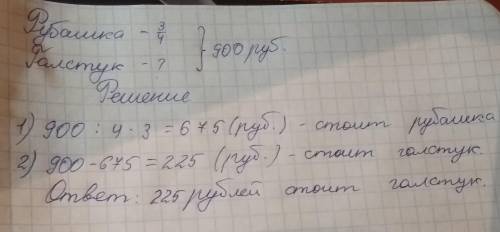 Рубашка - 3/4
Галстук - ? } 900 руб.
Решение
1) 900 : 4 · 3 = 675 (руб.) - стоит рубашка
2) 900 - 675 = 225 (руб.) - стоит галстук.
Ответ: 225 рублей стоит галстук.